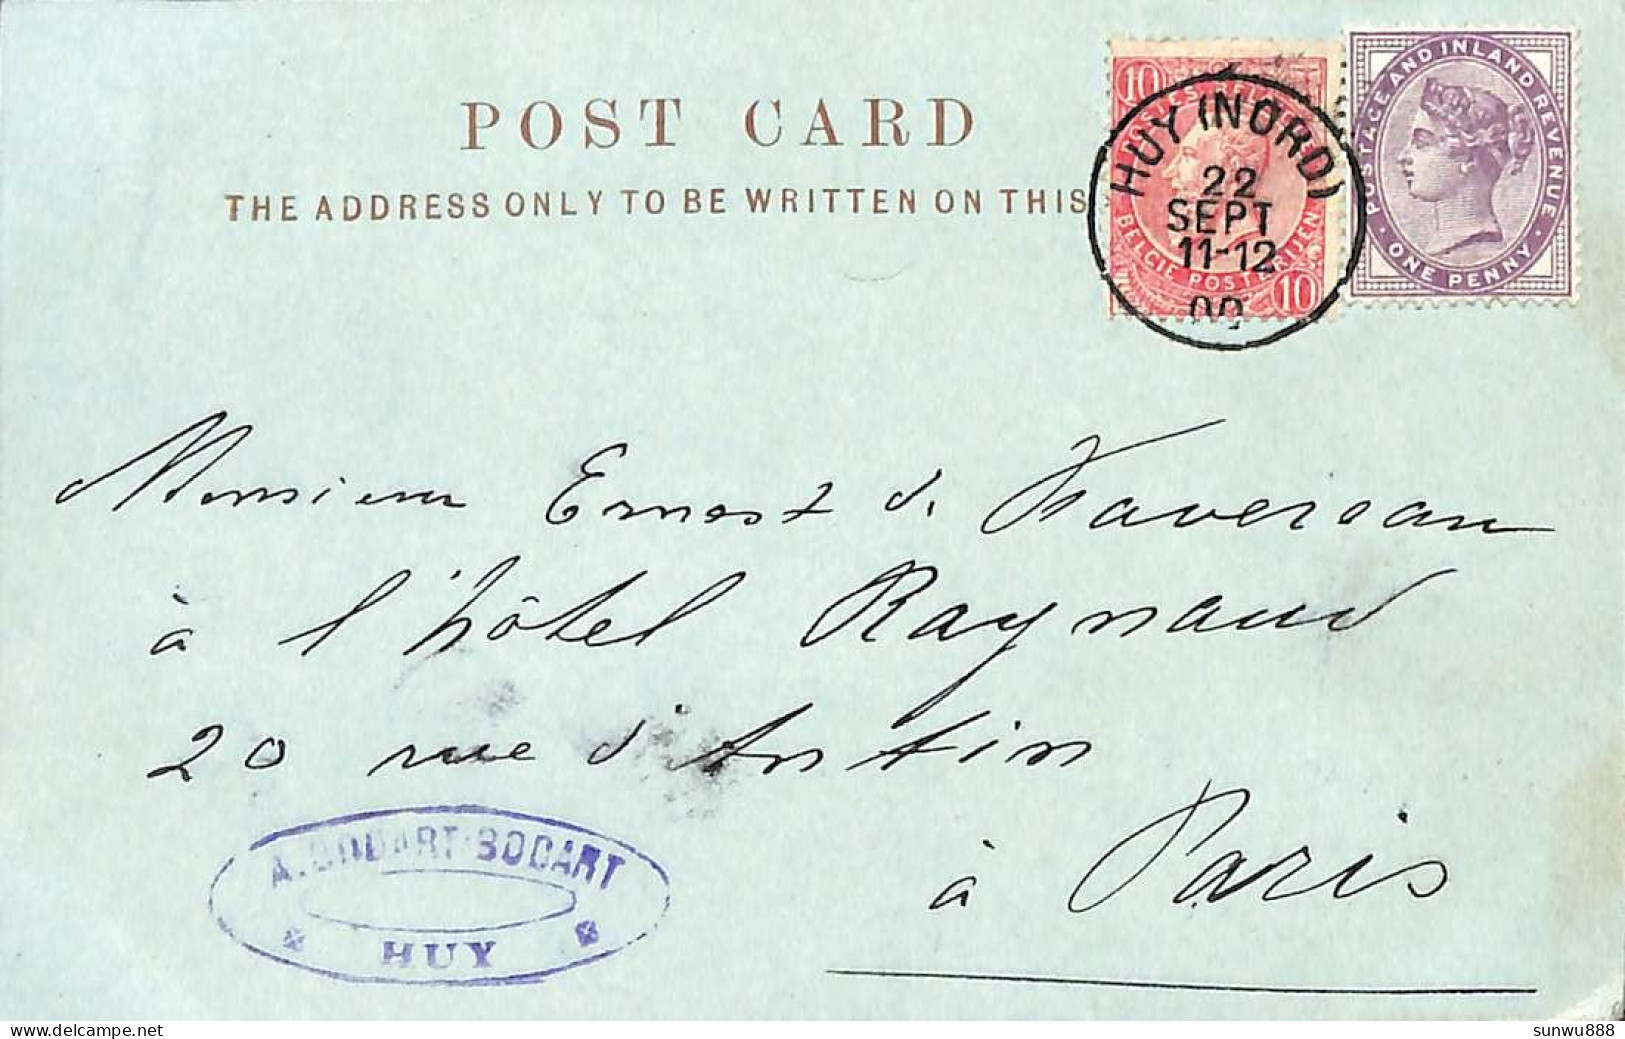 POST CARD
THE ADDRESS ONLY TO BE WRITTEN ON THIS
10
POSTES BELG
BELGIE POSTERIJEN
10
HUY (NORD)
22
SEPT
11-12
00
POSTAGE AND INLAND REVENUE
ONE PENNY
Monsieur Ernest d.
à l'hôtel Raynaud
20 rue d'Antin
à Paris
A. GODART-BODART
HUY
sunwu888